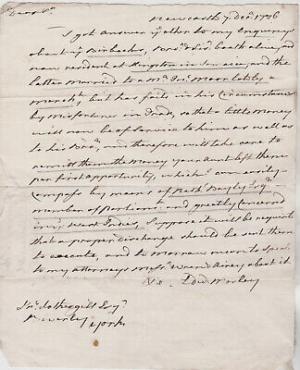 Dear Sr.
Newcastle 7 Decr. 1786
I got answer after to my Enquirys
about Birbecks, both alive, and
now resident at Kingston in Jamaica, and the
latter married to a Mr. Jn. Moor lately a
mercht. but has fail'd in his Circumstances
by misfortunes in Trade, so that a little Money
will now be of service to him as well as
to his and therefore will take care to
remitt them the Money your aunt left them
per first opportunity, which I can easily
Compass by means of Bayly Esqr.
member of Parliamt. and greatly concerned
in West Indies, Suppose it will be requisite
that a proper discharge should be sent them
to execute, and to morrow mean to speak
to my attorneys Messrs. about it
Edw Mosley
Jn. Fothergill Esqr.
Beverley
Yorks